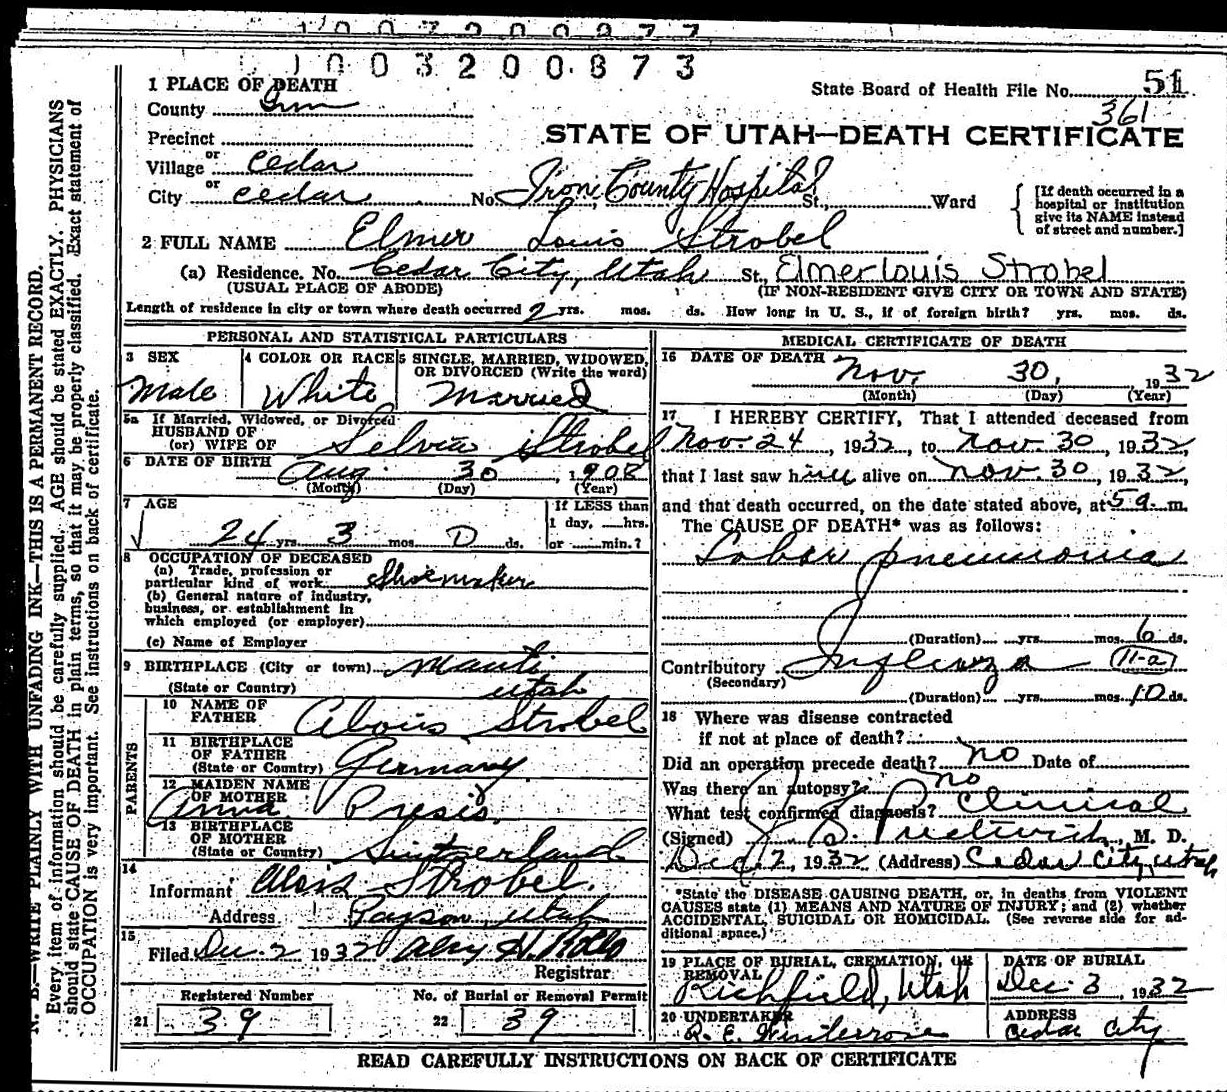 1003200873
1 PLACE OF DEATH
State Board of Health File No. 51
361
County Iron
STATE OF UTAH—DEATH CERTIFICATE
Precinct
or
Village Cedar
or
City Cedar No. Iron County Hospital St., Ward
[If death occurred in a
hospital or institution
give its NAME instead
of street and number.]
2 FULL NAME Elmer Louis Strobel
(a) Residence. No. Cedar City, Utah St., Elmer Louis Strobel
(USUAL PLACE OF ABODE) (IF NON-RESIDENT GIVE CITY OR TOWN AND STATE)
Length of residence in city or town where death occurred 2 yrs. mos. ds. How long in U. S., if of foreign birth? yrs. mos. ds.
PERSONAL AND STATISTICAL PARTICULARS
3 SEX
Male
4 COLOR OR RACE
White
5 SINGLE, MARRIED, WIDOWED,
OR DIVORCED (Write the word)
Married
5a If Married, Widowed, or Divorced
HUSBAND OF
(or) WIFE OF Selvia Strobel
6 DATE OF BIRTH
Aug 30, 1908
(Month) (Day) (Year)
7 AGE
24 yrs. 3 mos. 0 ds.
If LESS than
1 day, hrs.
or min.?
8 OCCUPATION OF DECEASED
(a) Trade, profession or
particular kind of work Shoemaker
(b) General nature of industry,
business, or establishment in
which employed (or employer)
(c) Name of Employer
9 BIRTHPLACE (City or town) Manti
(State or Country) Utah
PARENTS
10 NAME OF
FATHER Alois Strobel
11 BIRTHPLACE
OF FATHER
(State or Country) Germany
12 MAIDEN NAME
OF MOTHER
Anna Presis
13 BIRTHPLACE
OF MOTHER
(State or Country) Switzerland
14
Informant Alois Strobel.
Address Payson, Utah
15
Filed Dec. 2 1932
Registrar
Registered Number
21 39
No. of Burial or Removal Permit
22 39
MEDICAL CERTIFICATE OF DEATH
16 DATE OF DEATH
Nov. 30, 1932
(Month) (Day) (Year)
17 I HEREBY CERTIFY, That I attended deceased from
Nov. 24, 1932, to Nov. 30, 1932,
that I last saw him alive on Nov. 30, 1932,
and that death occurred, on the date stated above, at 5 a. m.
The CAUSE OF DEATH* was as follows:
Lobar pneumonia
(Duration) yrs. mos. 6 ds.
Contributory Influenza 11-a
(Secondary)
(Duration) yrs. mos. 10 ds.
18 Where was disease contracted
if not at place of death?
Did an operation precede death? no Date of
Was there an autopsy? no
What test confirmed diagnosis? Clinical
(Signed) M. D.
Dec. 2, 1932 (Address) Cedar City, Utah
*State the DISEASE CAUSING DEATH, or, in deaths from VIOLENT
CAUSES state (1) MEANS AND NATURE OF INJURY; and (2) whether
ACCIDENTAL, SUICIDAL OR HOMICIDAL. (See reverse side for ad-
ditional space.)
19 PLACE OF BURIAL, CREMATION, OR
REMOVAL
Richfield, Utah
DATE OF BURIAL
Dec. 3, 1932
20 UNDERTAKER
R. E. Winterrose
ADDRESS
Cedar City
READ CAREFULLY INSTRUCTIONS ON BACK OF CERTIFICATE
N. B.—WRITE PLAINLY WITH UNFADING INK—THIS IS A PERMANENT RECORD.
Every item of information should be carefully supplied. AGE should be stated EXACTLY. PHYSICIANS
should state CAUSE OF DEATH in plain terms, so that it may be properly classified. Exact statement of
OCCUPATION is very important. See instructions on back of certificate.